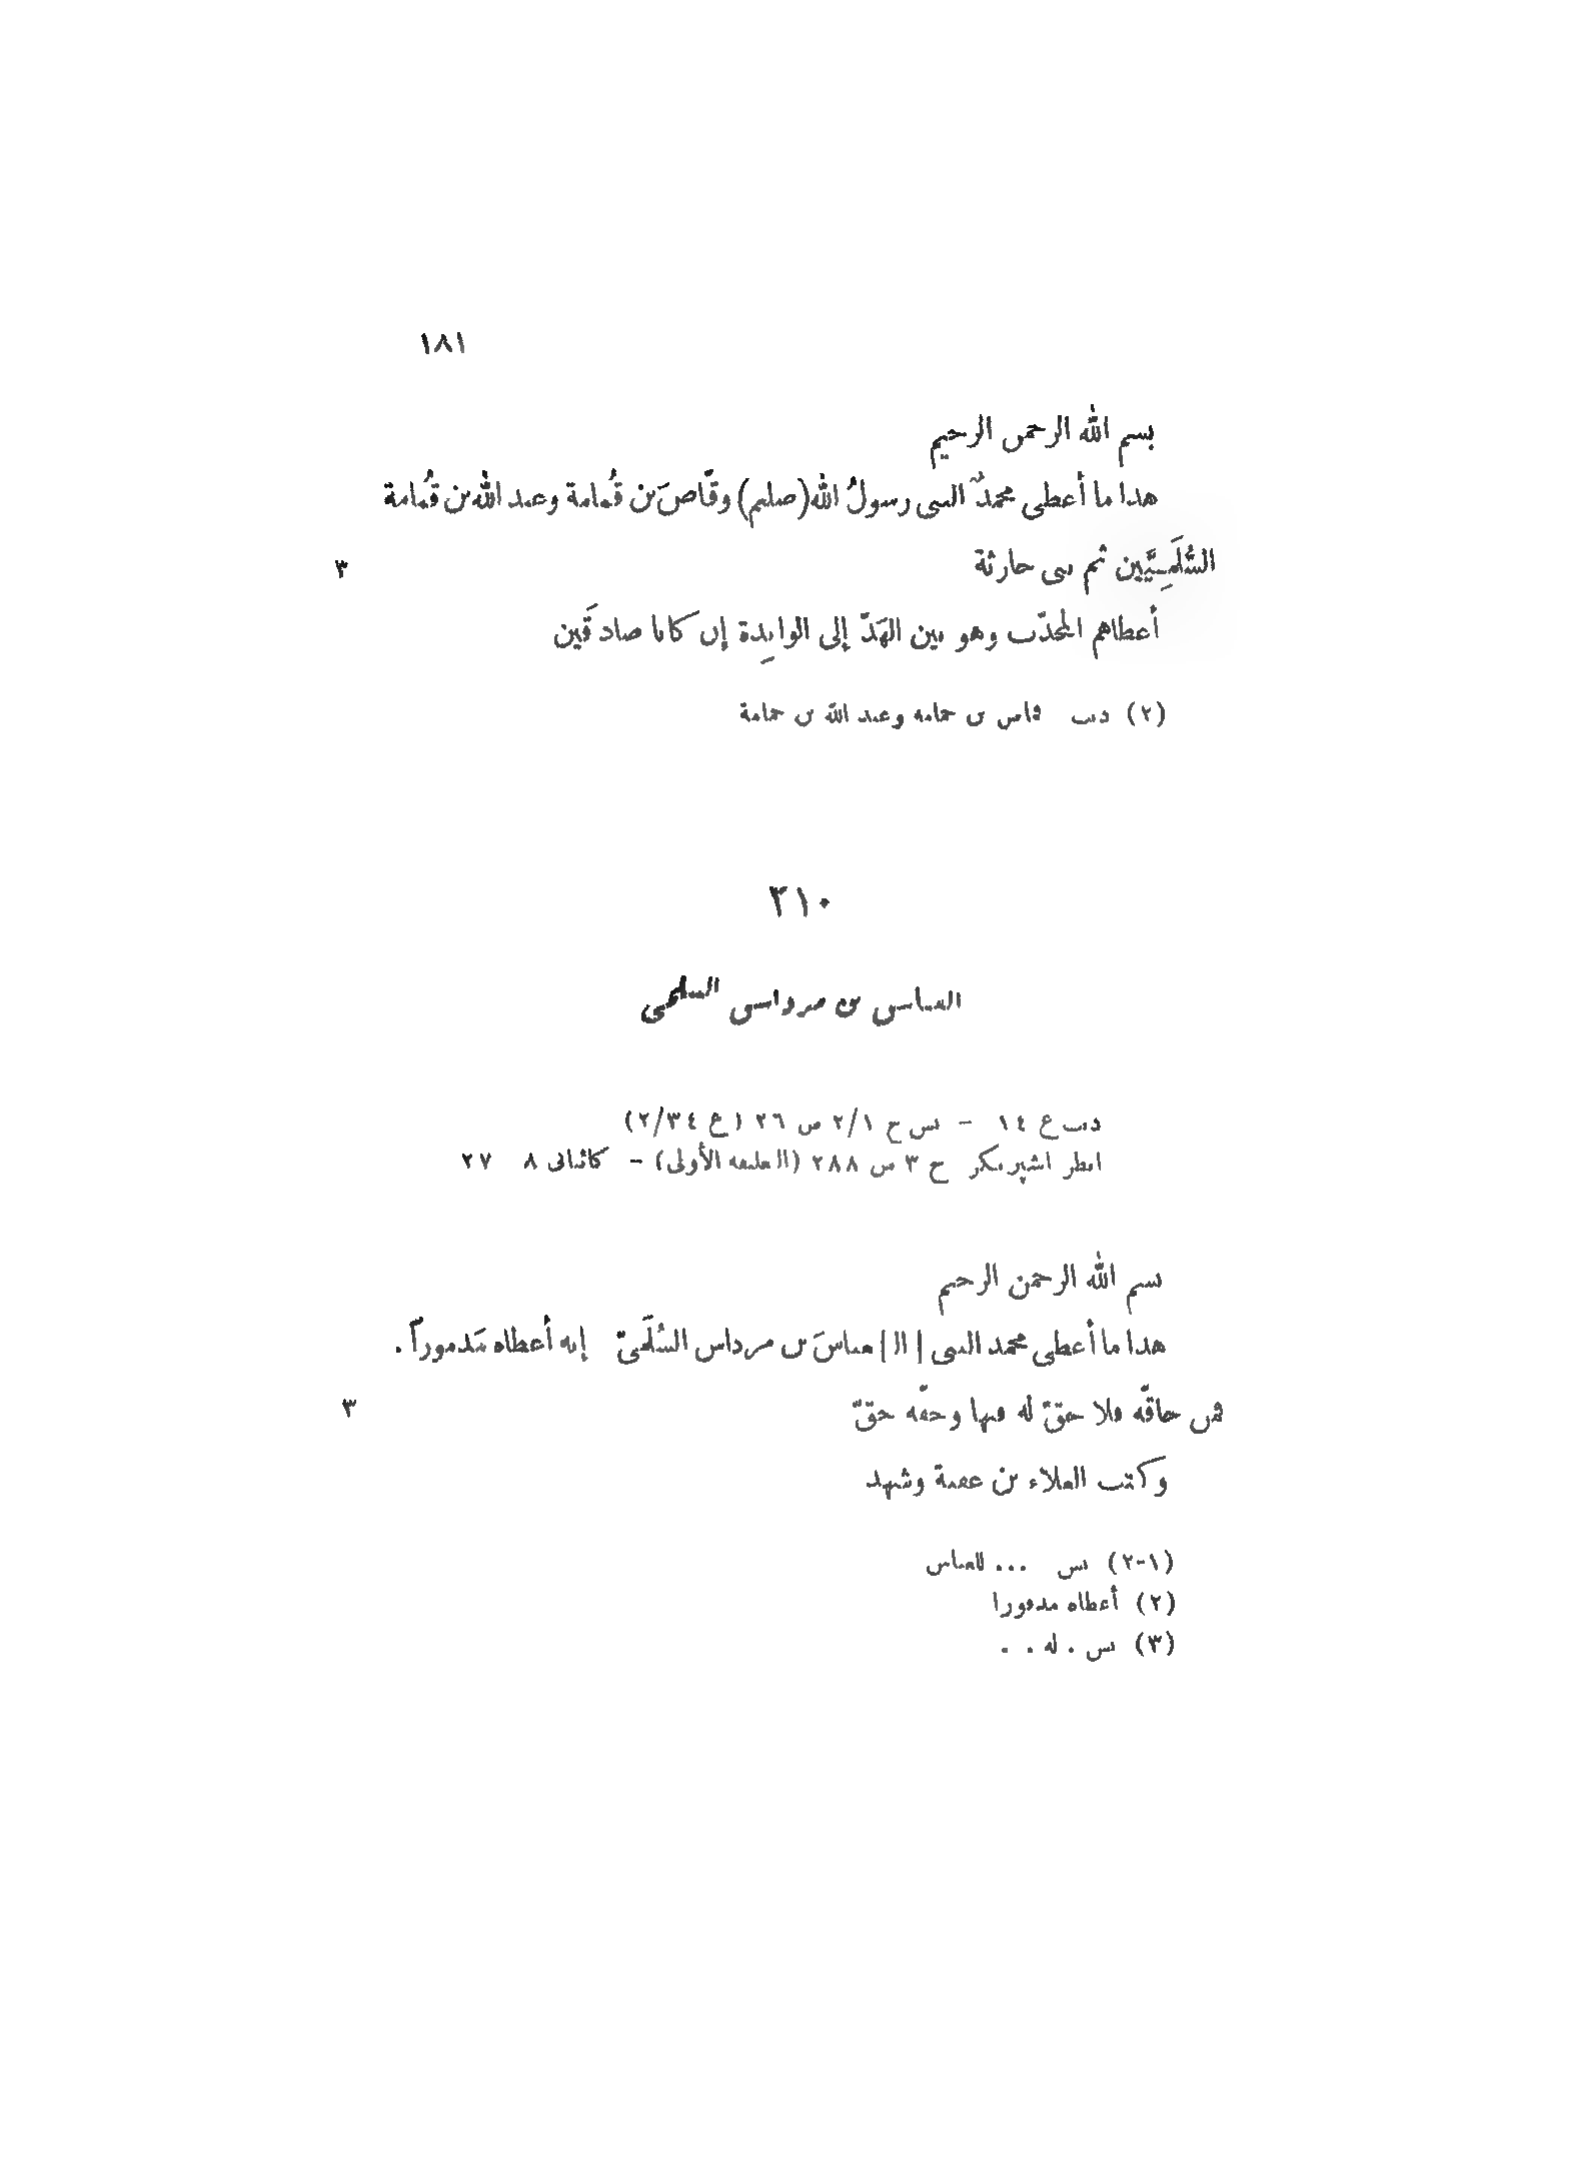 ١٨١
بسم الله الرحمن الرحيم
هذا ما أعطى محمدٌ النبي رسولُ الله (صلعم) وقّاصَ بن قُمامة وعبد الله بن قُمامة
السُّلَمِيَّين ثم بني حارثة
٣
أعطاهم المحدّب وهو بين الهَدّ إلى الوابِدة إن كانا صادقَين
(٢) دب قاس بن حمامه وعبد الله بن حمامة
٢١٠
العباس بن مرداس السلمي
دب ع ١٤ - بس ج ٢/١ ص ٢٦ (ع ٢/٣٤)
انظر اشپرنگر ج ٣ ص ٢٨٨ (الطبعه الأولى) - كائتاني ٨ ٢٧
بسم الله الرحمن الرحيم
هذا ما أعطى محمد النبي |ال| عباسَ بن مرداس السُّلَميّ إنه أعطاه مَدموراً.
فمن حاقّه فلا حقّ له فيها وحقه حقّ
٣
وكتب العلاء بن عقبة وشهد
(١-٢) بس ... للعباس
(٢) أعطاه مدفورا
(٣) بس . له . .